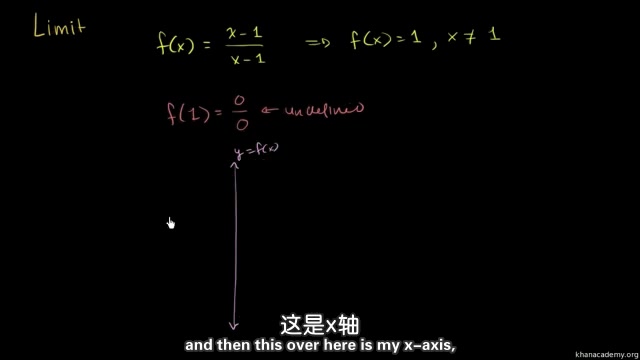 Limit
f(x) = x-1 / x-1 ⇒ f(x) = 1 , x ≠ 1
f(1) = 0/0 ← undefined
y = f(x)
这是x轴
and then this over here is my x-axis,
khanacademy.org